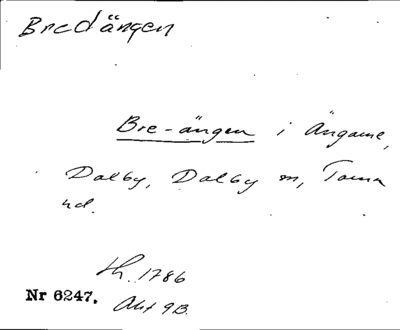 Bredängen
Bre-ängen i Ängarne,
Dalby, Dalby sn, Torna
hd.
Lh. 1786
Nr 6247. Akt 9B.